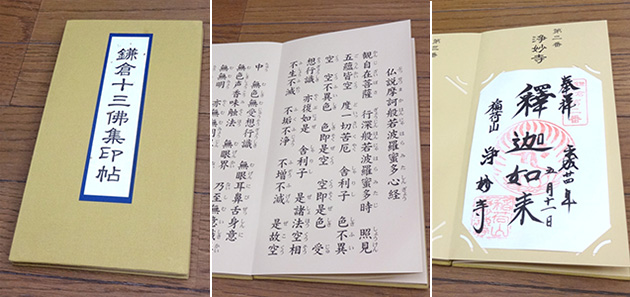 鎌倉十三佛集印帖
仏説摩訶般若波羅蜜多心経
観自在菩薩 行深般若波羅蜜多時 照見
五蘊皆空 度一切苦厄 舎利子 色不異
空 空不異色 色即是空 空即是色 受
想行識 亦復如是 舎利子 是諸法空相
不生不滅 不垢不浄 不増不減 是故空
中 無色無受想行識 無眼耳鼻舌身意
無色声香味触法 無眼界 乃至無意
無無明 亦無
第二番
浄妙寺
奉拝
五月十一日
釋迦如来
稲荷山 浄妙寺
第三番